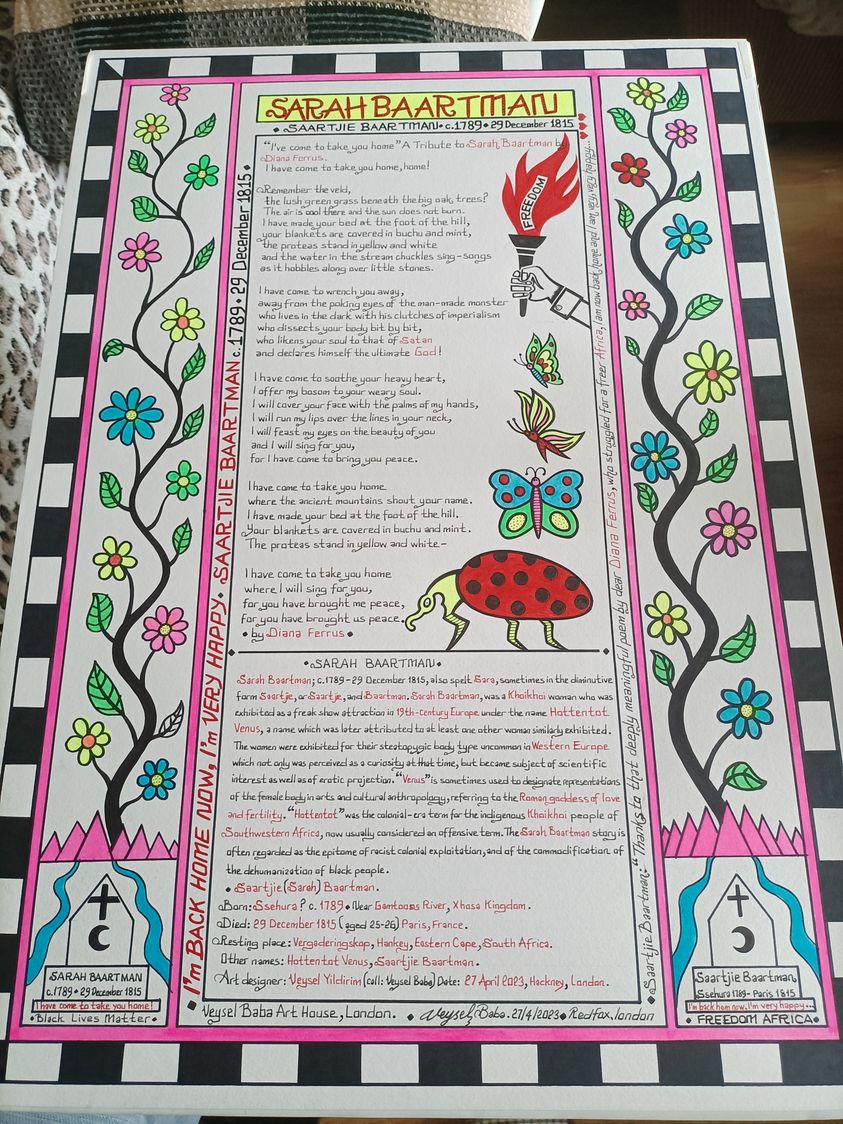 SARAH BAARTMAN
• SAARTJIE BAARTMAN • c.1789 • 29 December 1815
"I've come to take you home" A Tribute to Sarah Baartman by
Diana Ferrus.
I have come to take you home, home!
Remember the veld,
the lush green grass beneath the big oak trees?
The air is cool there and the sun does not burn.
I have made your bed at the foot of the hill,
your blankets are covered in buchu and mint,
the proteas stand in yellow and white
and the water in the stream chuckles sing-songs
as it hobbles along over little stones.
I have come to wrench you away,
away from the poking eyes of the man-made monster
who lives in the dark with his clutches of imperialism
who dissects your body bit by bit,
who likens your soul to that of Satan
and declares himself the ultimate God!
I have come to soothe your heavy heart,
I offer my bosom to your weary soul.
I will cover your face with the palms of my hands,
I will run my lips over the lines in your neck,
I will feast my eyes on the beauty of you
and I will sing for you,
for I have come to bring you peace.
I have come to take you home
where the ancient mountains shout your name.
I have made your bed at the foot of the hill.
Your blankets are covered in buchu and mint.
The proteas stand in yellow and white -
I have come to take you home
where I will sing for you,
for you have brought me peace,
for you have brought us peace.
• by Diana Ferrus •
FREEDOM
• SARAH BAARTMAN •
Sarah Baartman; c.1789 - 29 December 1815, also spelt Sara, sometimes in the diminutive
form Saartje, or Saartje, and Baartman. Sarah Baartman, was a Khoikhoi woman who was
exhibited as a freak show attraction in 19th-century Europe under the name Hottentot
Venus, a name which was later attributed to at least one other woman similarly exhibited.
The women were exhibited for their steatopygic body type uncommon in Western Europe
which not only was perceived as a curiosity at that time, but became subject of scientific
interest as well as of erotic projection. "Venus" is sometimes used to designate representations
of the female body in arts and cultural anthropology, referring to the Roman goddess of love
and fertility. "Hottentot" was the colonial-era term for the indigenous Khoikhoi people of
Southwestern Africa, now usually considered an offensive term. The Sarah Baartman story is
often regarded as the epitome of racist colonial exploitation, and of the commodification of
the dehumanization of black people.
• Saartjie (Sarah) Baartman.
Born: Ssehura? c. 1789 • Near Gamtoos River, Xhosa Kingdom.
Died: 29 December 1815 (aged 25-26) Paris, France.
Resting place: Vergaderingskop, Hankey, Eastern Cape, South Africa.
Other names: Hottentot Venus, Saartjie Baartman.
Art designer: Veysel Yildirim (call: Veysel Baba) Date: 27 April 2023, Hackney, London.
• Veysel Baba Art House, London. • Veysel Baba. 27/4/2023 • Redfox, london
• I'm BACK HOME NOW, I'm VERY HAPPY • SAARTJIE BAARTMAN c.1789 • 29 December 1815 •
• Saartjie Baartman: "Thanks to that deeply meaningful poem by dear Diana Ferrus, who struggled for a freer Africa, I am now back home and I am very, very happy...
SARAH BAARTMAN
c.1789 • 29 December 1815
I have come to take you home!
• Black Lives Matter •
Saartjie Baartman
Ssehura 1789 - Paris 1815
I'm back hom now, I'm very happy...
• FREEDOM AFRICA •